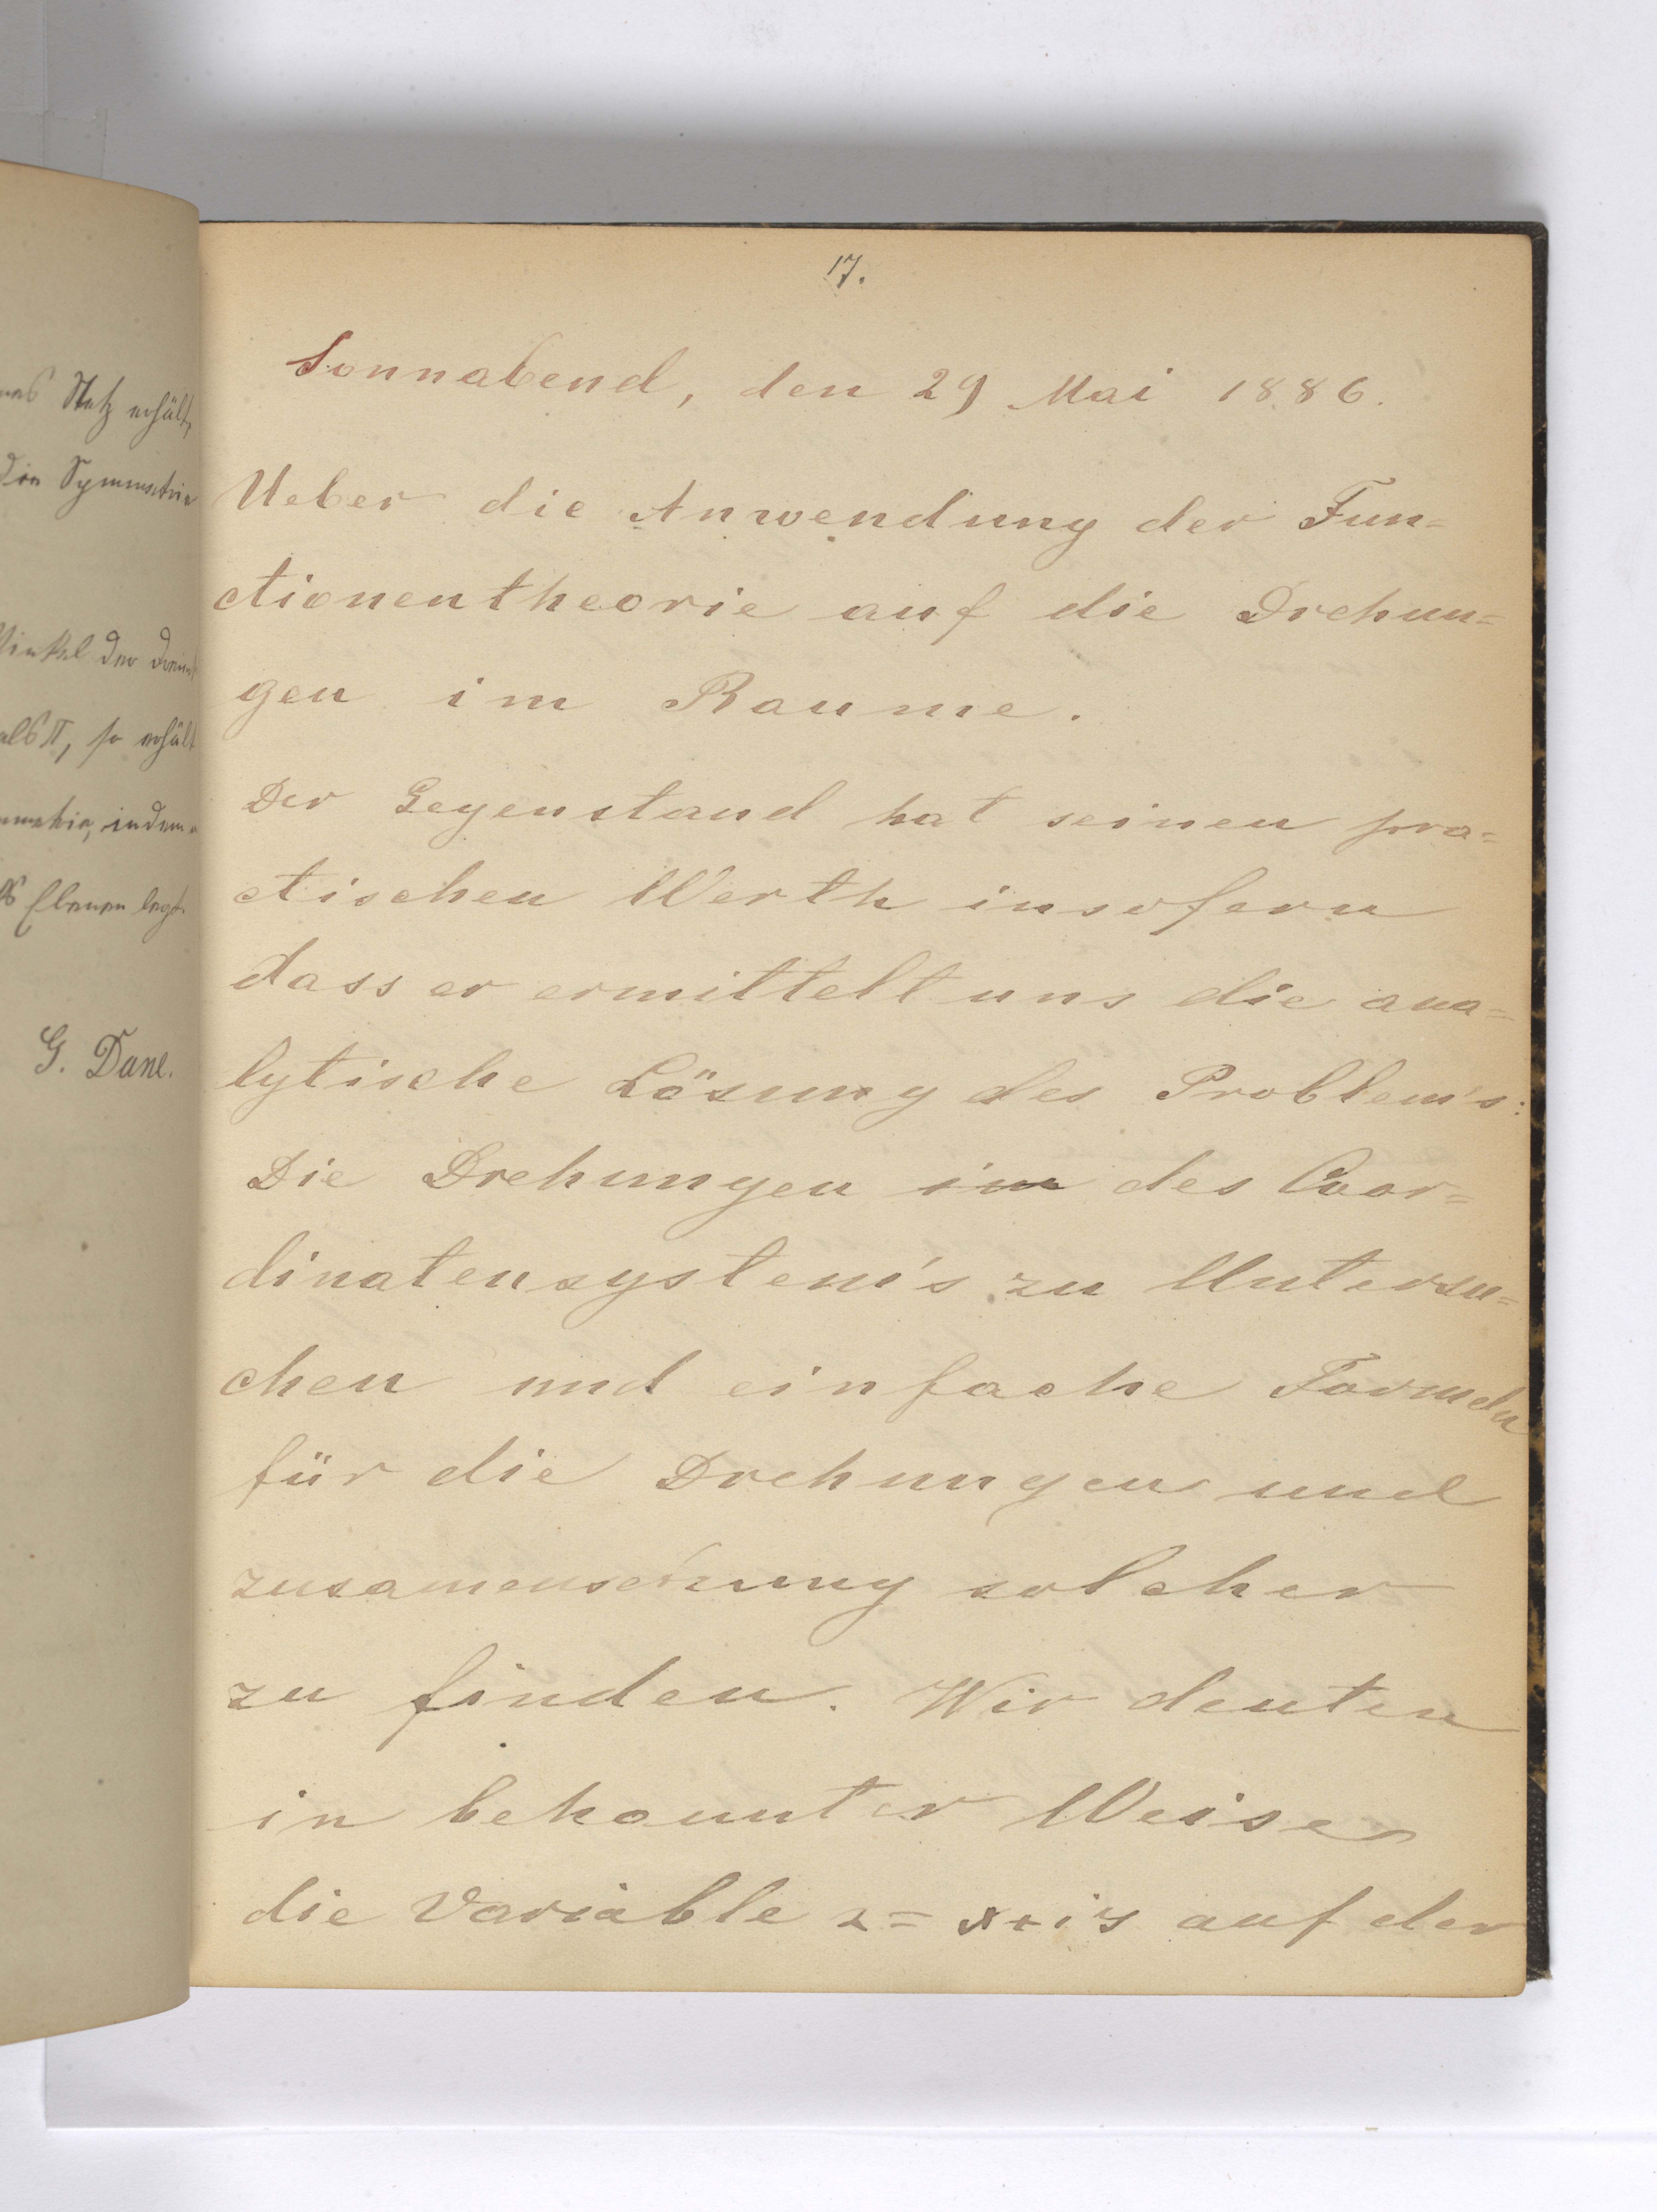 nas Netz erhält,
die Symmetrie
Winkel der
als π, so erhält
indem
Ebenen legt.
G. Dane.
17.
Sonnabend, den 29 Mai 1886.
Ueber die Anwendung der Fun=
ctionentheorie auf die Drehun=
gen im Raume.
Der Gegenstand hat seinen pra=
ctischen Werth insofern
dass er ermittelt uns die ana=
lytische Lösung des Problem's:
Die Drehungen im des Coor=
dinatensystem's zu Untersu=
chen und einfache Formeln
für die Drehungen und
zusamensetzung solcher
zu finden. Wir deuten
in bekannter Weise
die Variable z = x+iy auf der